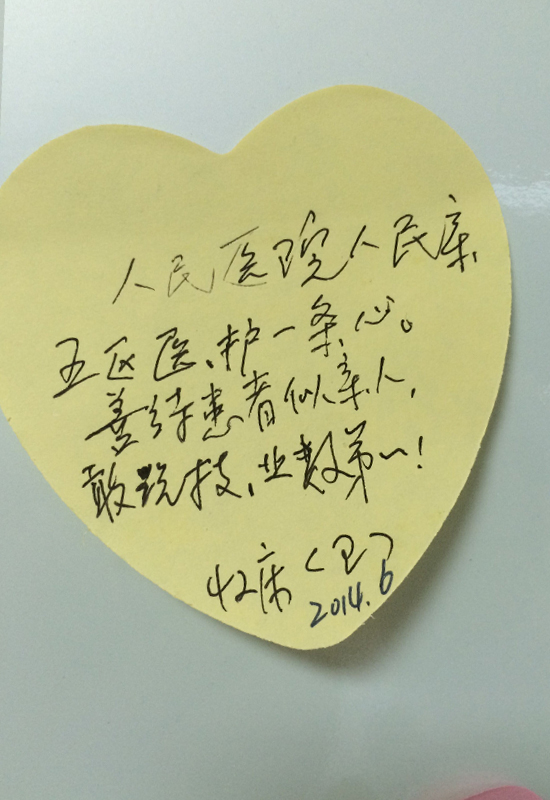 人民医院人民亲,
五区医、护一条心。
善待患者似亲人,
敢说技、业数第一!
42床(王)
2014.6